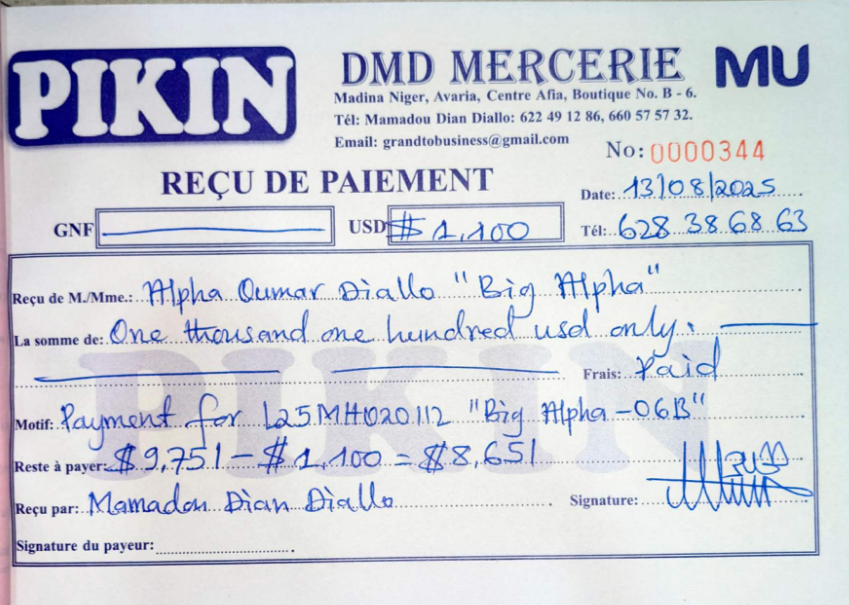 PIKIN
DMD MERCERIE
MU
Madina Niger, Avaria, Centre Afia, Boutique No. B - 6.
Tél: Mamadou Dian Diallo: 622 49 12 86, 660 57 57 32.
Email: grandtobusiness@gmail.com
No: 0000344
REÇU DE PAIEMENT
Date: 13/08/2025
GNF
USD $ 1,100
Tél: 628.38.68.63
Reçu de M./Mme.: Alpha Oumar Diallo "Big Alpha"
La somme de: One thousand one hundred usd only.
Frais: Paid
Motif: Payment for L25MH020112 "Big Alpha-06B"
Reste à payer: $9,751 - $1,100 = $8,651
Reçu par: Mamadou Dian Diallo
Signature:
Signature du payeur:
PIKIN